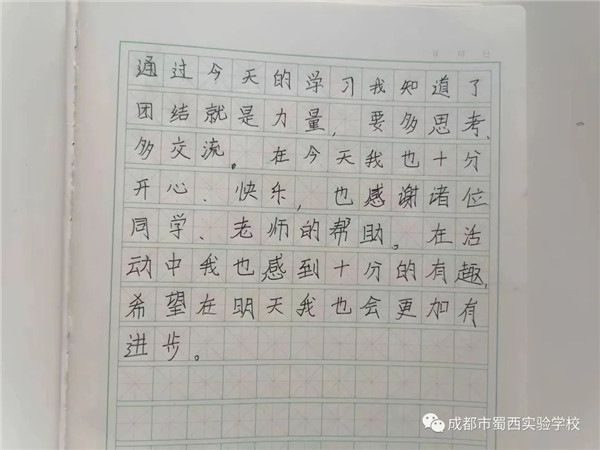 通过今天的学习我知道了
团结就是力量，要多思考、
多交流。在今天我也十分
开心、快乐，也感谢诸位
同学、老师的帮助。在活
动中我也感到十分的有趣，
希望在明天我也会更加有
进步。
成都市蜀西实验学校